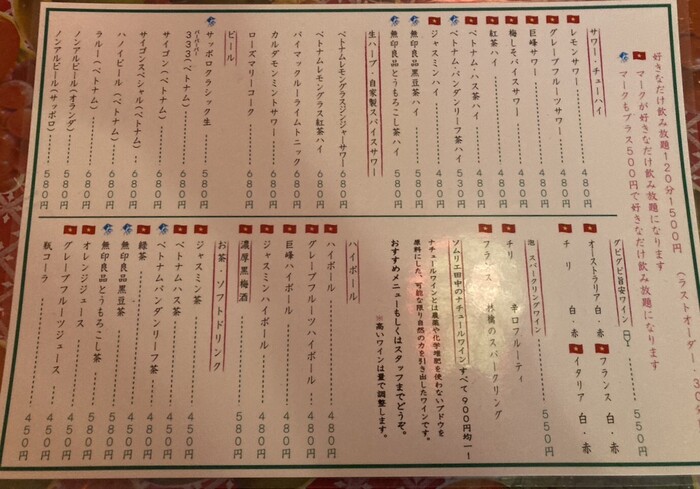 好きなだけ飲み放題120分1500円 (ラストオーダー
マークが好きなだけ飲み放題になります
マークもプラス500円で好きなだけ飲み放題になります
サワー・チューハイ
レモンサワー 480円
グレープフルーツサワー 480円
巨峰サワー 480円
梅しそパイスサワー 480円
紅茶ハイ 480円
ベトナム・ハス茶ハイ 480円
ベトナム・パンダンリーフ茶ハイ 530円
ジャスミンハイ 480円
無印良品黒豆茶ハイ 580円
無印良品とうもろこし茶ハイ 580円
生ハーブ・自家製スパイスサワー
ベトナムレモングラスジンジャーサワー 680円
ベトナムレモングラス紅茶ハイ 680円
バイマックルーライムトニック 680円
カルダモンミントサワー 680円
ローズマリーコーク 680円
ビール
サッポロクラシック生 580円
バーバーバー
333(ベトナム) 680円
サイゴン(ベトナム) 680円
サイゴンスペシャル(ベトナム) 680円
ハノイビール(ベトナム) 680円
ラルー(ベトナム) 680円
ノンアルビール(オランダ) 580円
ノンアルビール(サッポロ) 580円
グビグビ旨安ワイン 550円
オーストラリア 白・赤
フランス 白・赤
チリ 白・赤
イタリア 白・赤
泡 スパークリングワイン 550円
チリ 辛口フルーティ
フランス 林檎のスパークリング
ソムリエ田中のナチュールワインすべて900円均一!
ナチュールワインとは農薬や化学堆肥を使わないブドウを
原料にした、可能な限り自然の力を引き出したワインです。
おすすめメニューもしくはスタッフまでどうぞ。
※高いワインは量で調整します。
ハイボール
ハイボール 480円
グレープフルーツハイボール 480円
巨峰ハイボール 480円
ジャスミンハイボール 480円
濃厚黒梅酒 580円
お茶・ソフトドリンク
ジャスミン茶 450円
ベトナムハス茶 450円
ベトナムパンダンリーフ茶 450円
緑茶 450円
無印良品黒豆茶 450円
無印良品とうもろこし茶 580円
オレンジジュース 450円
グレープフルーツジュース 450円
瓶コーラ 450円